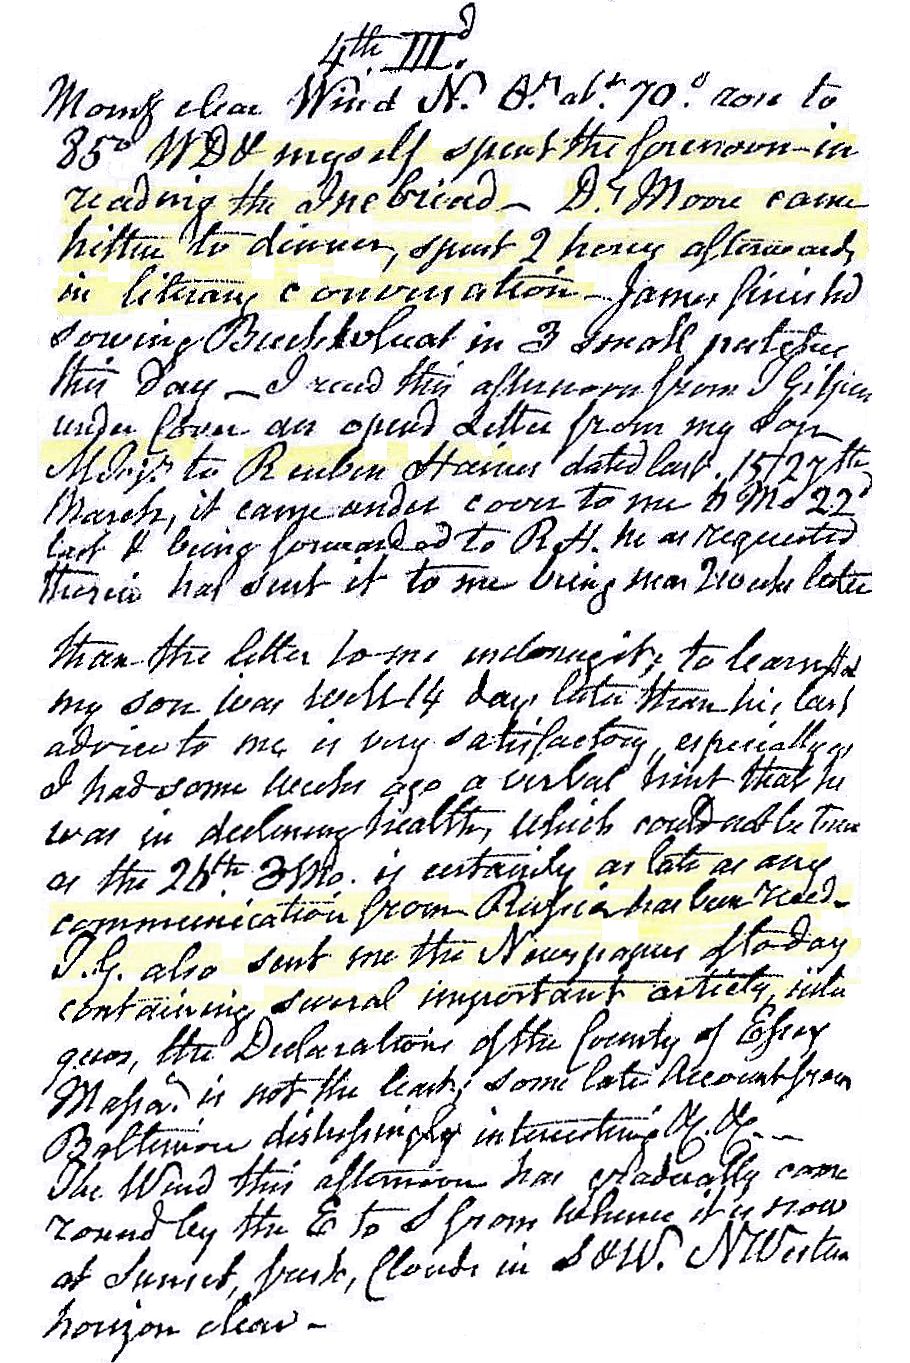 4th III.d
Morng clear Wind N. Br at 70° rose to
85° WD & myself spent the forenoon in
reading the Inebriad – Dr Moore came
hither to dinner, spent 2 hours afterwards
in literary conversation – James finishd
sowing Buckwheat in 3 small patches
this day – I recd this afternoon from T Gilpin
under Cover an opend Letter from my Son
to Reuben Haines dated last 15/27th
March, it came under cover to me 6 Mo 22d
last & being forwarded to R.H. he as requested
therein has sent it to me being near 2 weeks later
than the letter to me to learn that
my son was well 14 days later than his last
advice to me is very satisfactory, especially as
I had some weeks ago a verbal hint that he
was in declining health, which could not be true
as the 26th 3 Mo. is certainly as late as any
communication from Russia has been recd –
T.G. also sent me the Newspaper of to day
containing several important articles, inter
quos, the Declarations of the County of Essex
Massa. is not the least; some late Account from
Baltimore distressingly interesting &c. &c. –
The Wind this afternoon has gradually come
round by the E to S from whence it is now
at Sunset, fresh, Clouds in S & W. N Western
horizon clear –